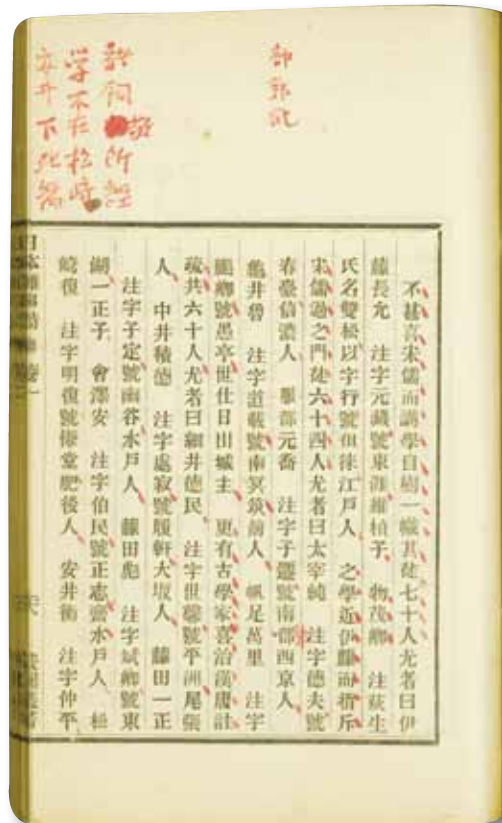 部郭訛
歆詞敬所經
学不在松崎
安井下
不甚喜宋儒而講學自樹一幟其徒七十人尤者曰伊
藤長允 注字元藏號東涯維楨子 物茂卿 注荻生
氏名雙松以字行號徂徠江戶人 之學近伊藤而指斥
宋儒過之門徒六十四人尤者曰太宰純 注字德夫號
春臺信濃人 服部元喬 注字子遷號南郭西京人
龜井魯 注字道載號南冥筑前人 帆足萬里 注字
鵬卿號愚亭世仕日出城主 更有古學家喜治漢唐註
疏共六十人尤者曰細井德民 注字世馨號平洲尾張
人 中井積德 注字處叔號履軒大坂人 藤田一正
注字子定號幽谷水戶人 藤田彪 注字斌卿號東
湖一正子 會澤安 注字伯民號正志齋水戶人 松
崎復 注字明復號慊堂肥後人 安井衡 注字仲平
日本 卷一